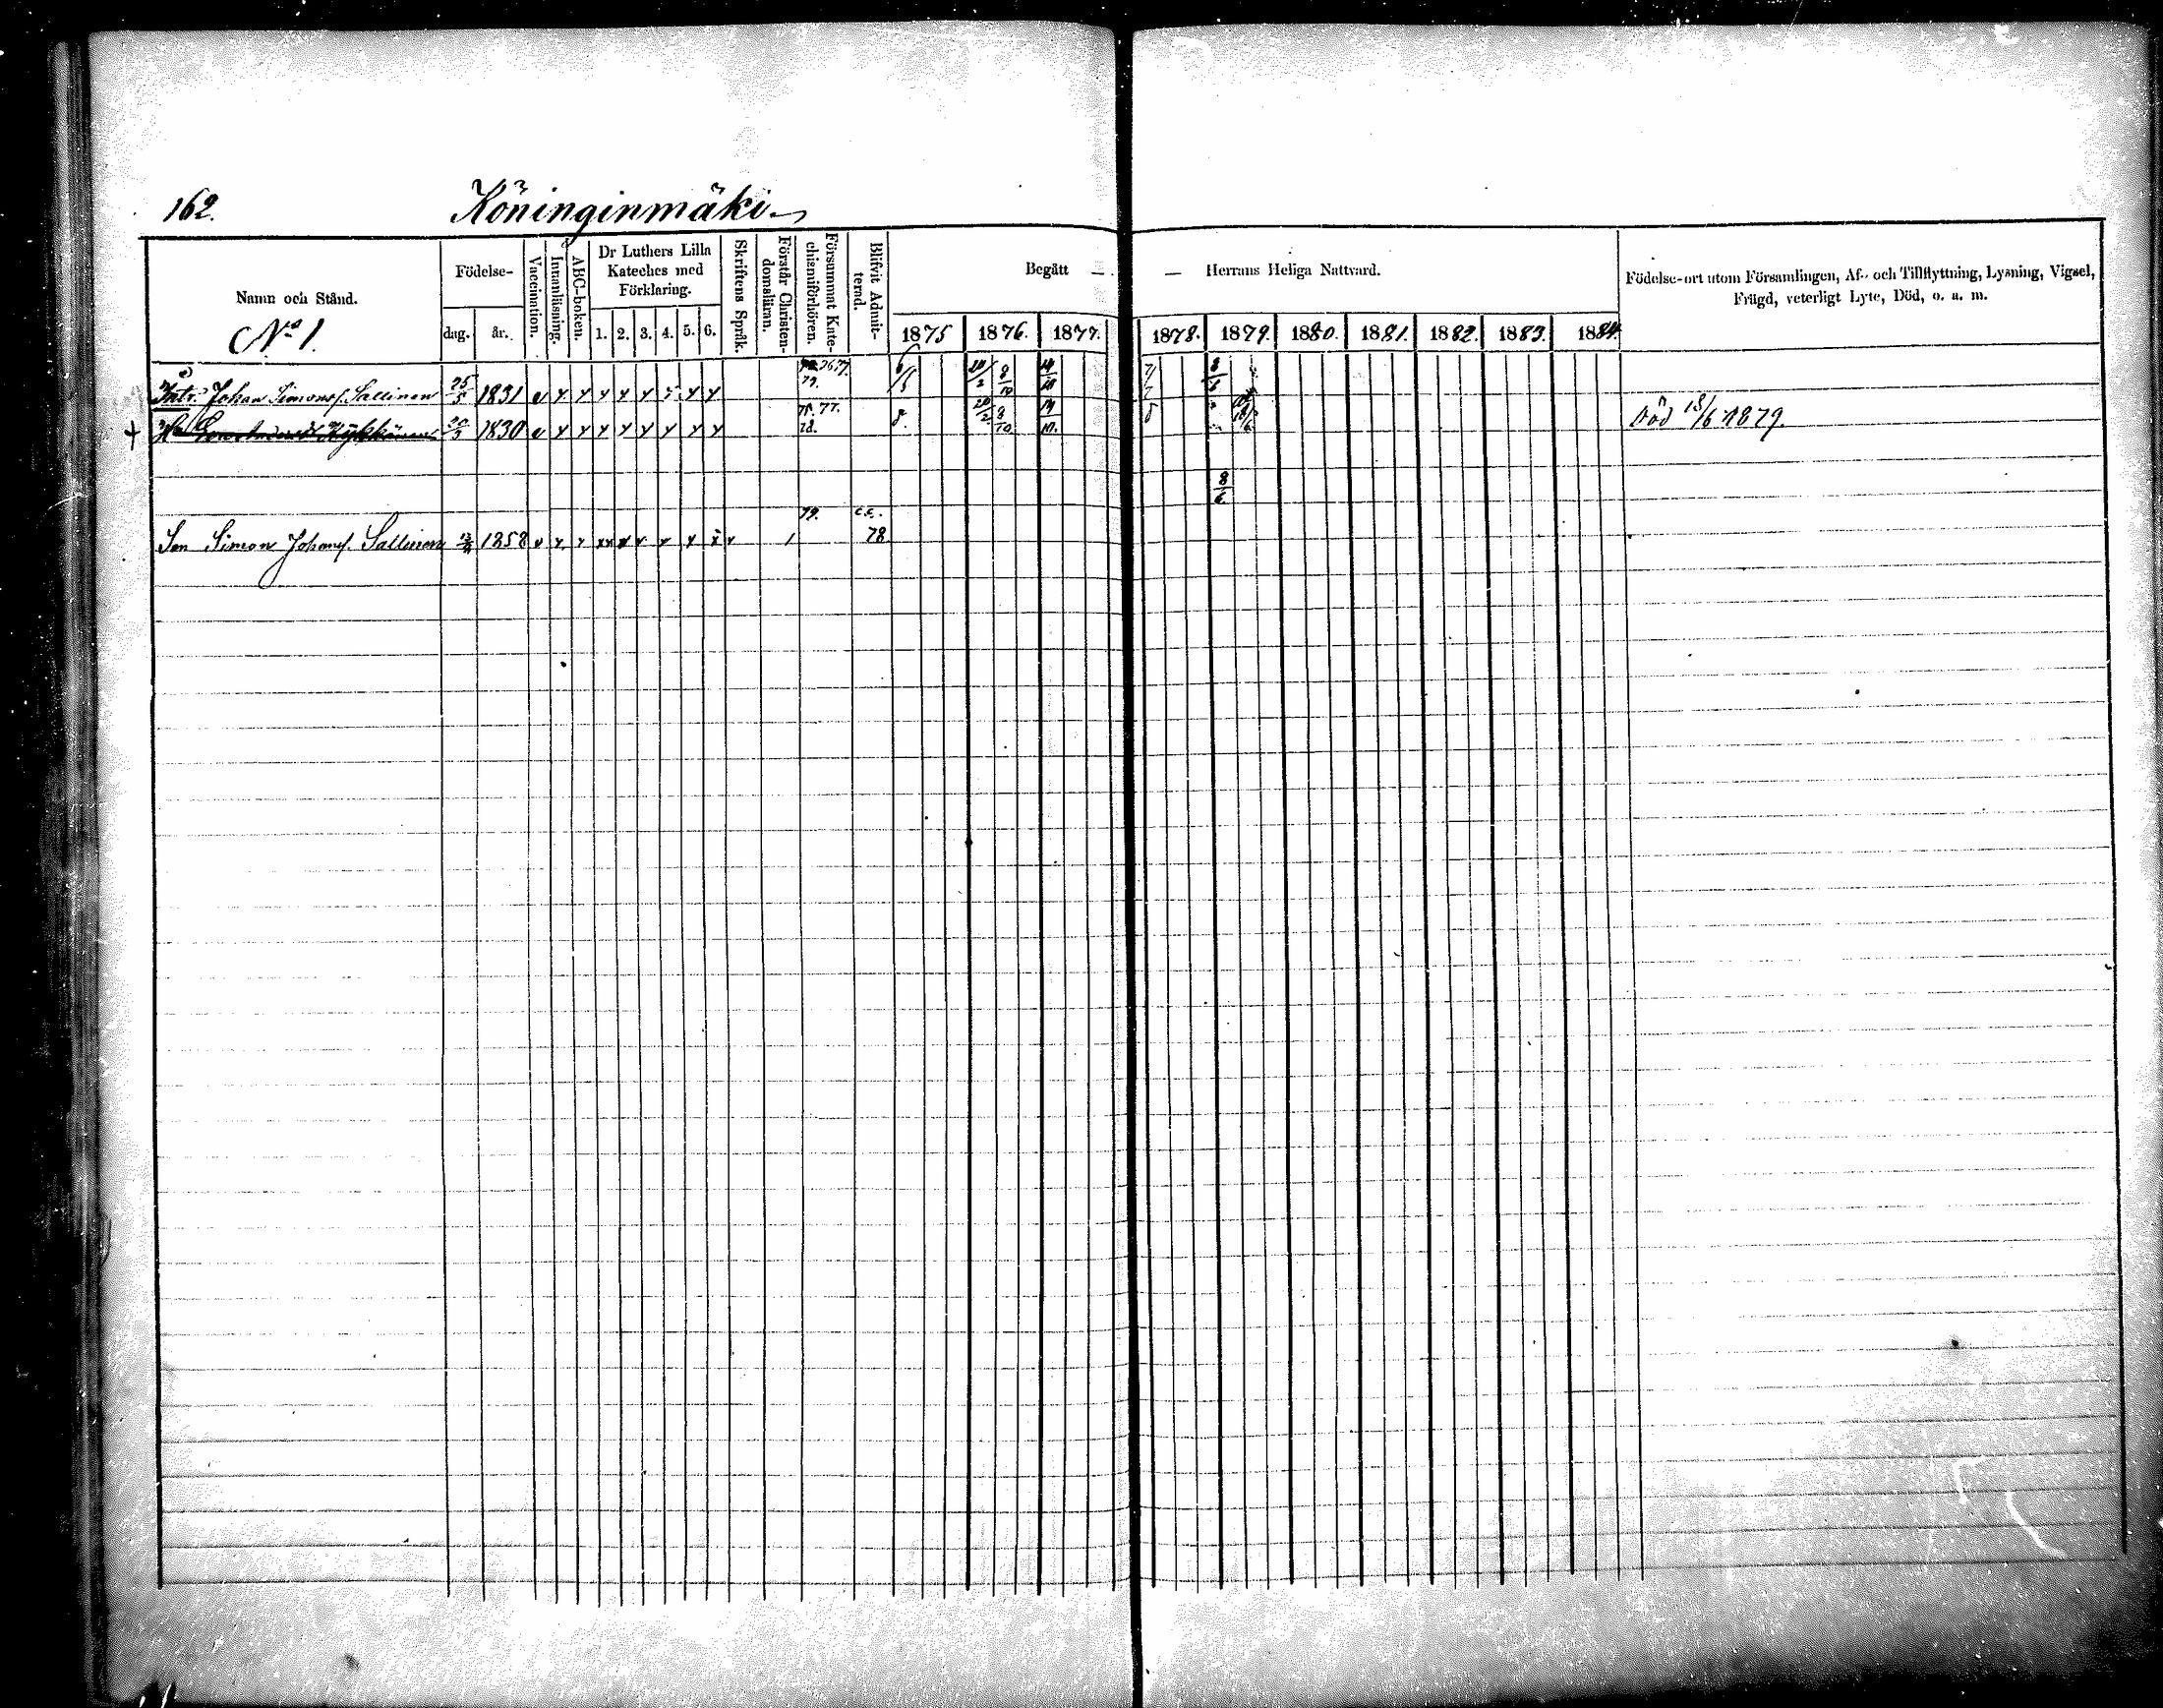 162. Köninginmäki
Namn och Stånd.
No 1.
Födelse-
dag. år.
Vaccination.
Innanläsning.
ABC-boken.
Dr Luthers Lilla
Kateches med
Förklaring.
1. 2. 3. 4. 5. 6.
Skriftens Språk.
Förstår Christen-
domsläran.
Försummat Kate-
chismiförhören.
Blifvit Admit-
terad.
Begått — — Herrans Heliga Nattvard.
1875 1876. 1877. 1878. 1879. 1880. 1881. 1882. 1883. 1884.
Födelse-ort utom Församlingen, Af- och Tillflyttning, Lysning, Vigsel,
Frägd, veterligt Lyte, Död, o. s. m.
Johan Simons. Sallinen 25/5 1831 79.
1830 75. 77. 78. 20/2 8/10 Död 18/6 1879.
8/6
Son Simon Johans. Sallinen 1858 79. 78